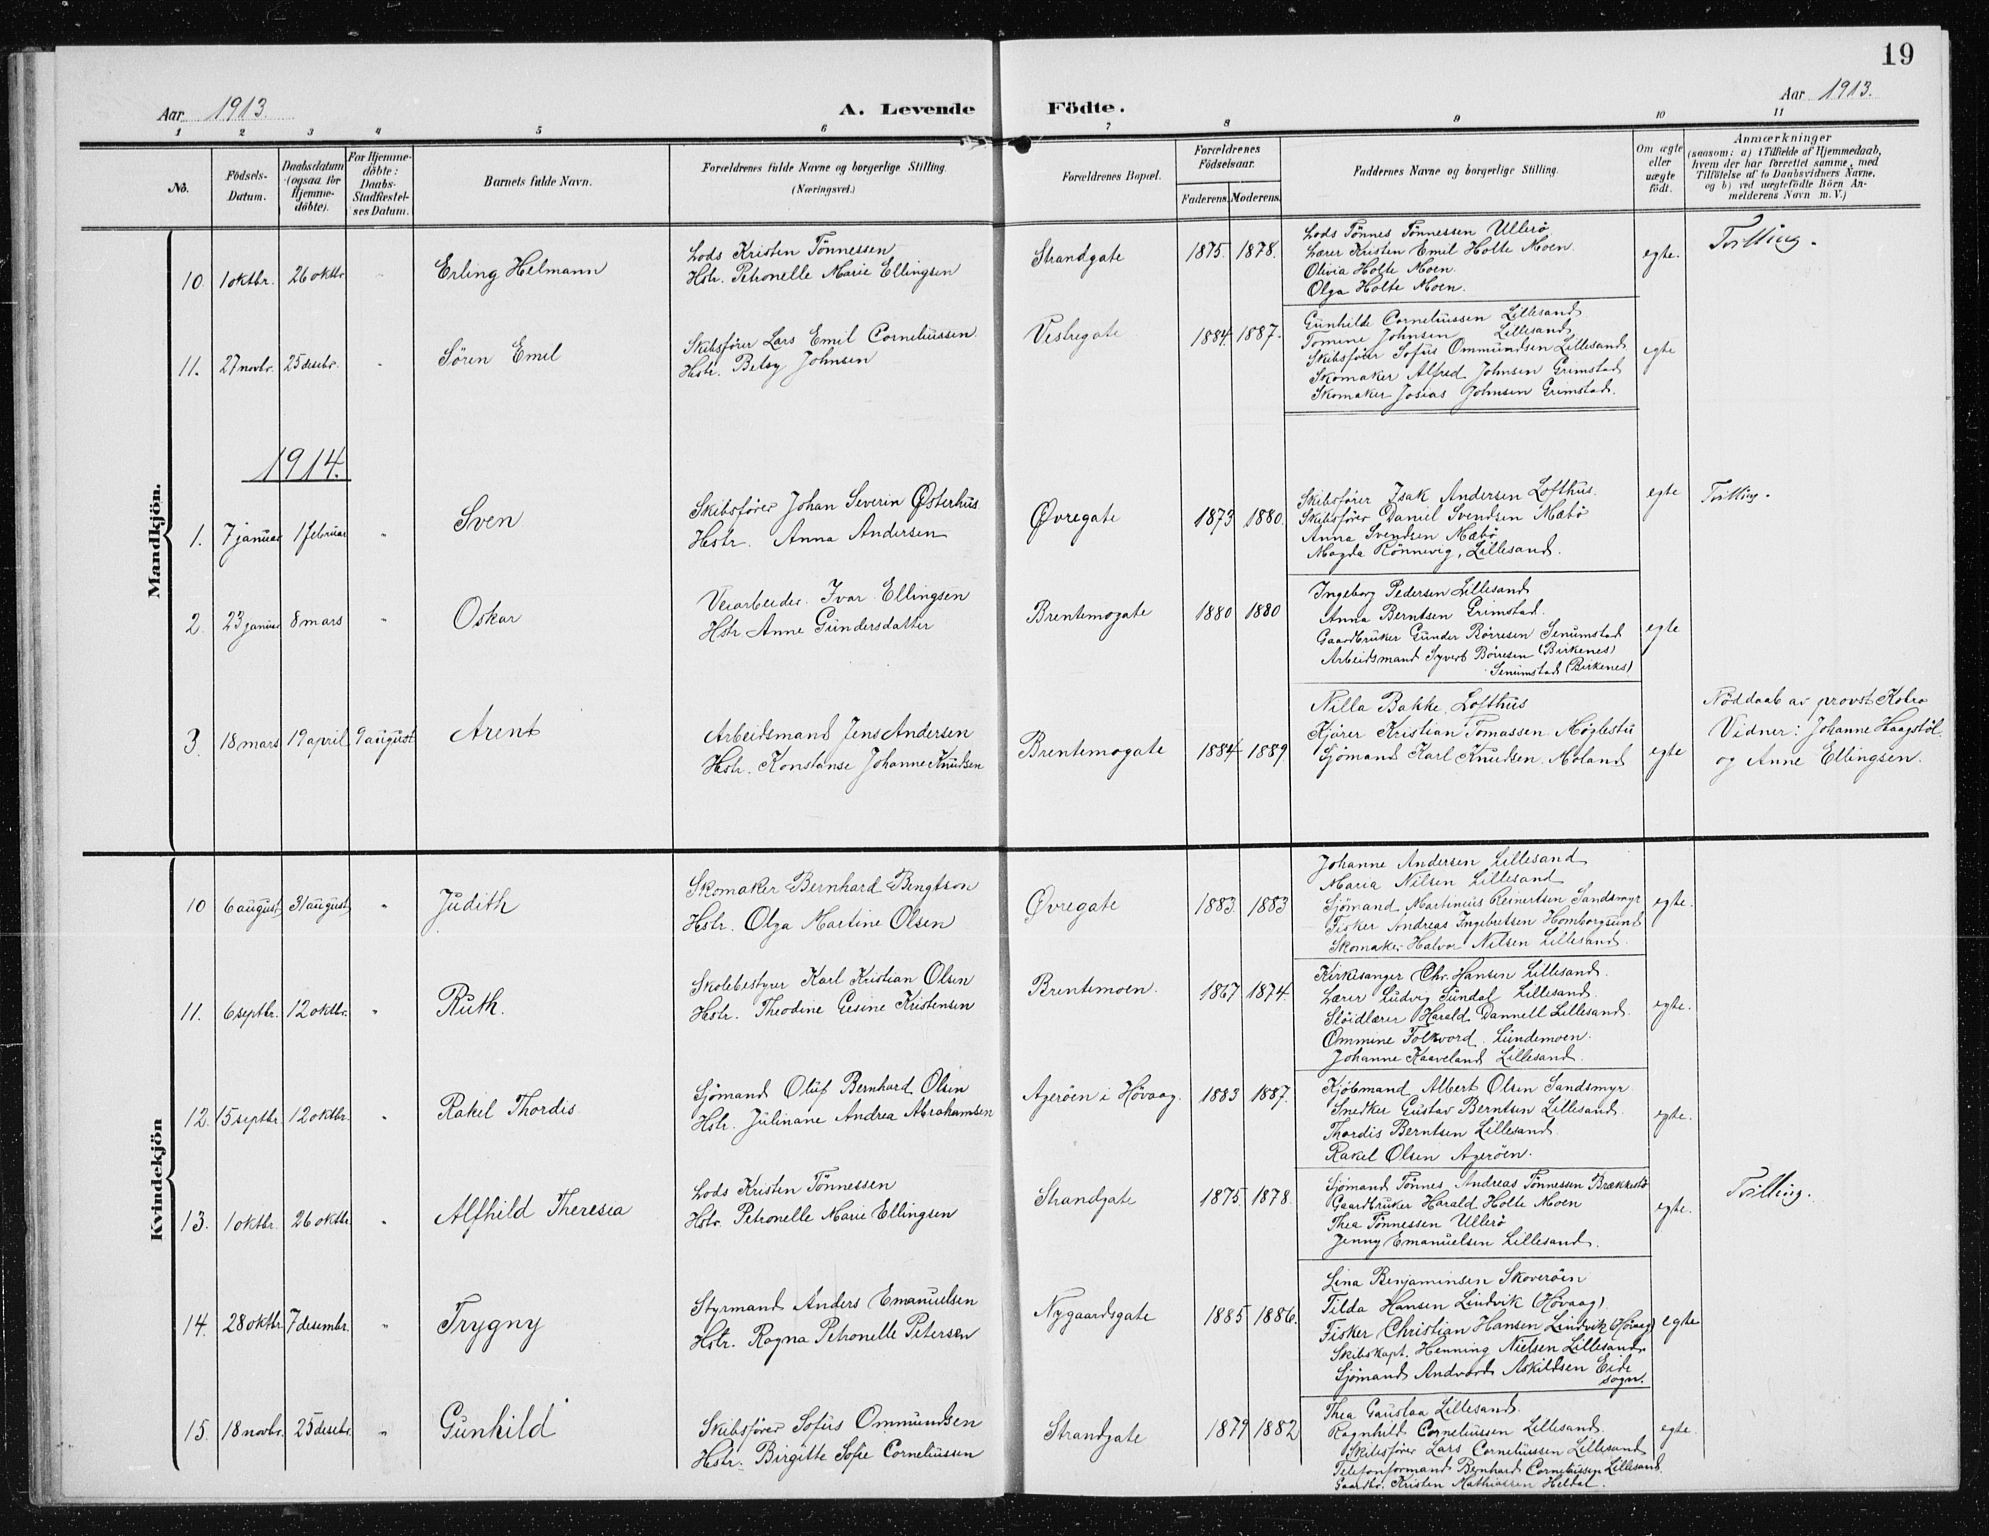 19
Aar 1913.
A. Levende Födte.
Aar 1913.
1 2 3 4 5 6 7 8 9 10 11
No.
Födsels-Datum.
Daabsdatum (ogsaa for Hjemme-döbte).
For Hjemme-döbte: Daabs-Stadfæstel-ses Datum.
Barnets fulde Navn.
Forældrenes fulde Navne og borgerlige Stilling.
(Næringsvei.)
Forældrenes Bopæl.
Forældrenes Födselsaar.
Faderens. Moderens.
Faddernes Navne og borgerlige Stilling.
Om ægte eller uægte födt.
Anmærkninger
(saasom: a) i Tilfælde af Hjemmedaab,
hvem der har forrettet samme, med
Tilföielse af to Daabsvidners Navne,
og b) ved uægtefödte Börn An-
melderens Navn m. V.)
Mandkjön.
10 1 oktbr. 26 oktbr. " Erling Helmann
Lods Kristen Tönnessen
Hstr. Petronelle Marie Ellingsen
Strandgate 1875. 1878.
Lods Tönnes Tönnessen Ullerö
Lærer Kristen Emil Holte Moen.
Olivia Holte Moen.
Olga Holte Moen.
egte. Tvilling.
11. 27 novbr. 25 desebr. " Sören Emil
Skibsfører Lars Emil Corneliussen
Hstr. Betsy Johnsen
Vestregate 1884. 1887.
Gunhilde Corneliussen Lillesand
Tomine Johnsen Lillesand
Skibsfører Sofus Ommundsen Lillesand
Skomaker Alfred Johnsen Grimstad
Skomaker Josias Johnsen Grimstad.
egte
1914.
1. 7 januar 1 februar " Sven
Skibsfører Johan Severin Østerhus
Hstr. Anna Andersen
Øvregate 1873 1880.
Skibsfører Isak Andersen Lofthus.
Skibsfører Daniel Svendsen Mæbö
Anna Svendsen Mæbö
Magda Rönnevig, Lillesand.
egte Tvilling.
2. 23 januar 8 mars " Oskar
Veiarbeider Ivar Ellingsen
Hstr. Anne Gundersdatter
Brentemogate 1880 1880
Ingeborg Pedersen Lillesand
Anna Berntsen Grimstad.
Gaardbruker Gunder Börresen Senumstad
Arbeidsmand Syvert Börresen (Birkenes)
Senumstad (Birkenes)
egte
3. 18 mars 19 april 9 august Arent
Arbeidsmand Jens Andersen
Hstr. Konstanse Johanne Knudsen
Brentemogate 1884 1889
Nilla Bakke, Lofthus
Kjører Kristian Tomassen Møglestu
Sjömand Karl Knudsen. Moland
egte
Nöddaab av provst Kobro
Vidner: Johanne Haagstöl
og Anne Ellingsen.
Kvindekjön
10 6 august 31 august " Judith
Skomaker Bernhard Bengtson
Hstr. Olga Martine Olsen
Øvregate 1883. 1883
Johanne Andersen Lillesand
Maria Nilsen Lillesand
Sjömand Martinius Reinertsen Sandsmyr
Fisker Andreas Ingebretsen Homborgsund
Skomaker Halvor Nilsen Lillesand.
egte.
11. 6 septbr. 12 oktbr. " Ruth.
Skolebestyrer Karl Kristian Olsen
Hstr. Theodine Gesine Kristensen
Brentemoen. 1867 1874.
Kirkesanger Chr. Hansen Lillesand.
Lærer Ludvig Sundal Lillesand.
Slöidlærer Harald Dannell Lillesand.
Ommine Tolkvord Lundemoen.
Johanne Kaaveland Lillesand.
egte.
12. 15 septbr. 12 oktbr. " Rakel Thordis.
Sjömand Oluf Bernhard Olsen
Hstr. Julinane Andrea Abrahamsen
Agerøen i Høvaag. 1883 1887.
Kjöbmand Albert Olsen Sandsmyr
Snedker Gustav Berntsen Lillesand.
Thordis Berntsen Lillesand.
Rakel Olsen Agerøen.
egte.
13. 1 oktbr. 26 oktbr. " Alfhild Theresia
Lods Kristen Tönnessen
Hstr. Petronelle Marie Ellingsen
Strandgate 1875. 1878.
Sjömand Tönnes Andreas Tönnessen Brækkestö
Gaardbruker Harald Holte Moen
Thea Tönnessen Ullerö
Jenny Emanuelsen Lillesand.
egte. Tvilling.
14. 28 oktbr. 7 desembr. " Trygny
Styrmand Anders Emanuelsen
Hstr. Ragna Petronelle Petersen
Nygaardsgate 1885 1886.
Lina Benjaminsen Skoverøen
Tilda Hansen Lindvik (Høvaag).
Fisker Christian Hansen Lindvik (Høvaag)
Skibskapt. Henning Nielsen Lillesand.
Sjömand Andvord Askildsen Eide
sogn.
egte
15. 18 novbr. 25 desebr. " Gunhild
Skibsfører Sofus Ommundsen
Hstr. Birgitte Sofie Corneliussen
Strandgate 1879 1882
Thea Gaustaa Lillesand.
Ragnhild Corneliussen Lillesand.
Skibsfører Lars Corneliussen Lillesand
Telefonformand Bernhard Corneliussen Lillesand.
Gaardbr. Kristen Mathiassen Heldal.
egte.